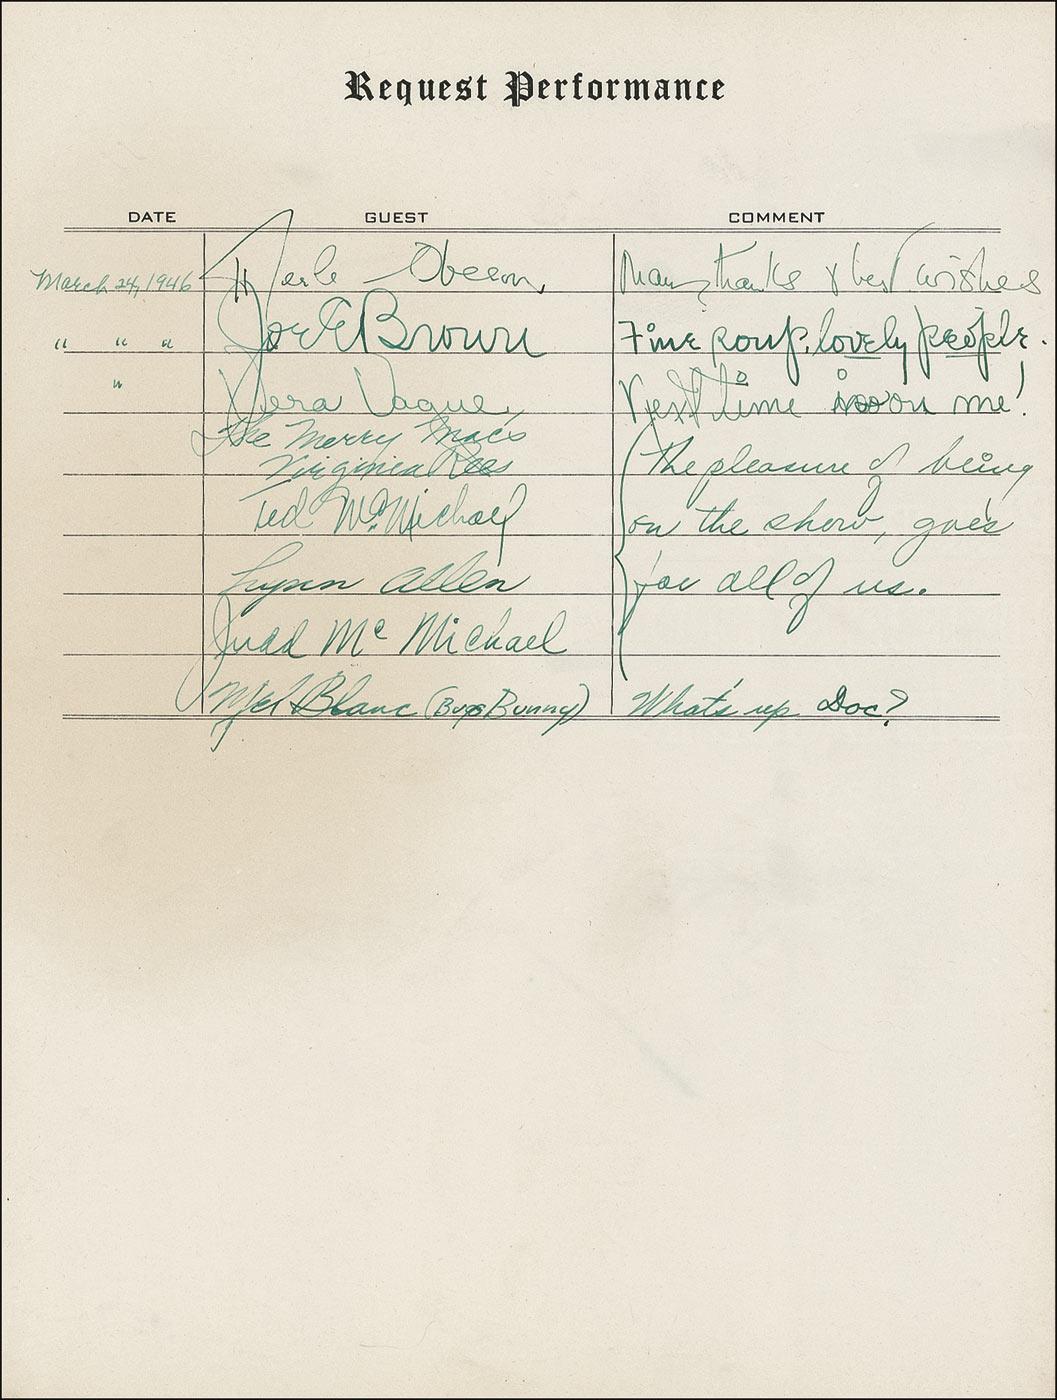 Request Performance
DATE GUEST COMMENT
March 24, 1946 Merle Oberon Many thanks & best wishes
" " " Joe E Brown Fine soup, lovely people.
" Vera Vague Next time is on me!
The Merry Macs
Virginia Rees The pleasure of being
Ted McMichael on the show, goes
Lynn Allen for all of us.
Judd McMichael
Mel Blanc (Bugs Bunny) What's up Doc?